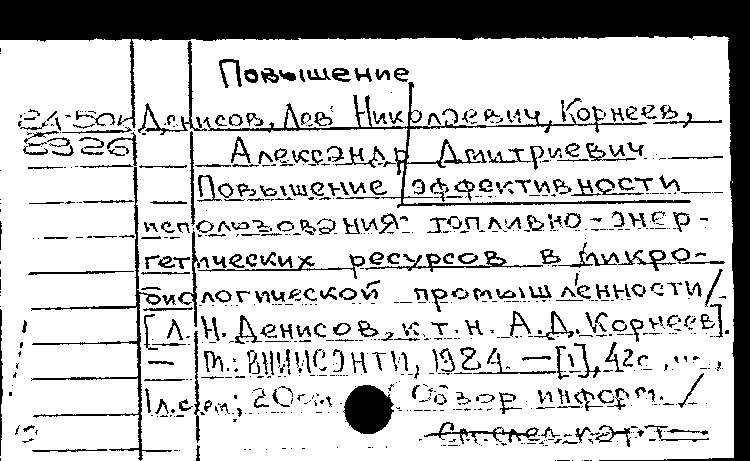 Повышение
84-50к Денисов, Лев Николаевич, Корнеев,
8926 Александр Дмитриевич
Повышение эффективности
использования топливно-энер-
гетических ресурсов в микро-
биологической промышленности/
[Л. Н. Денисов, к.т.н. А.Д. Корнеев].
— М.: ВНИИСЭНТИ, 1984. — [1], 42с.,
1л.схем; 20см (Обзор информ. /
См. след. карт.